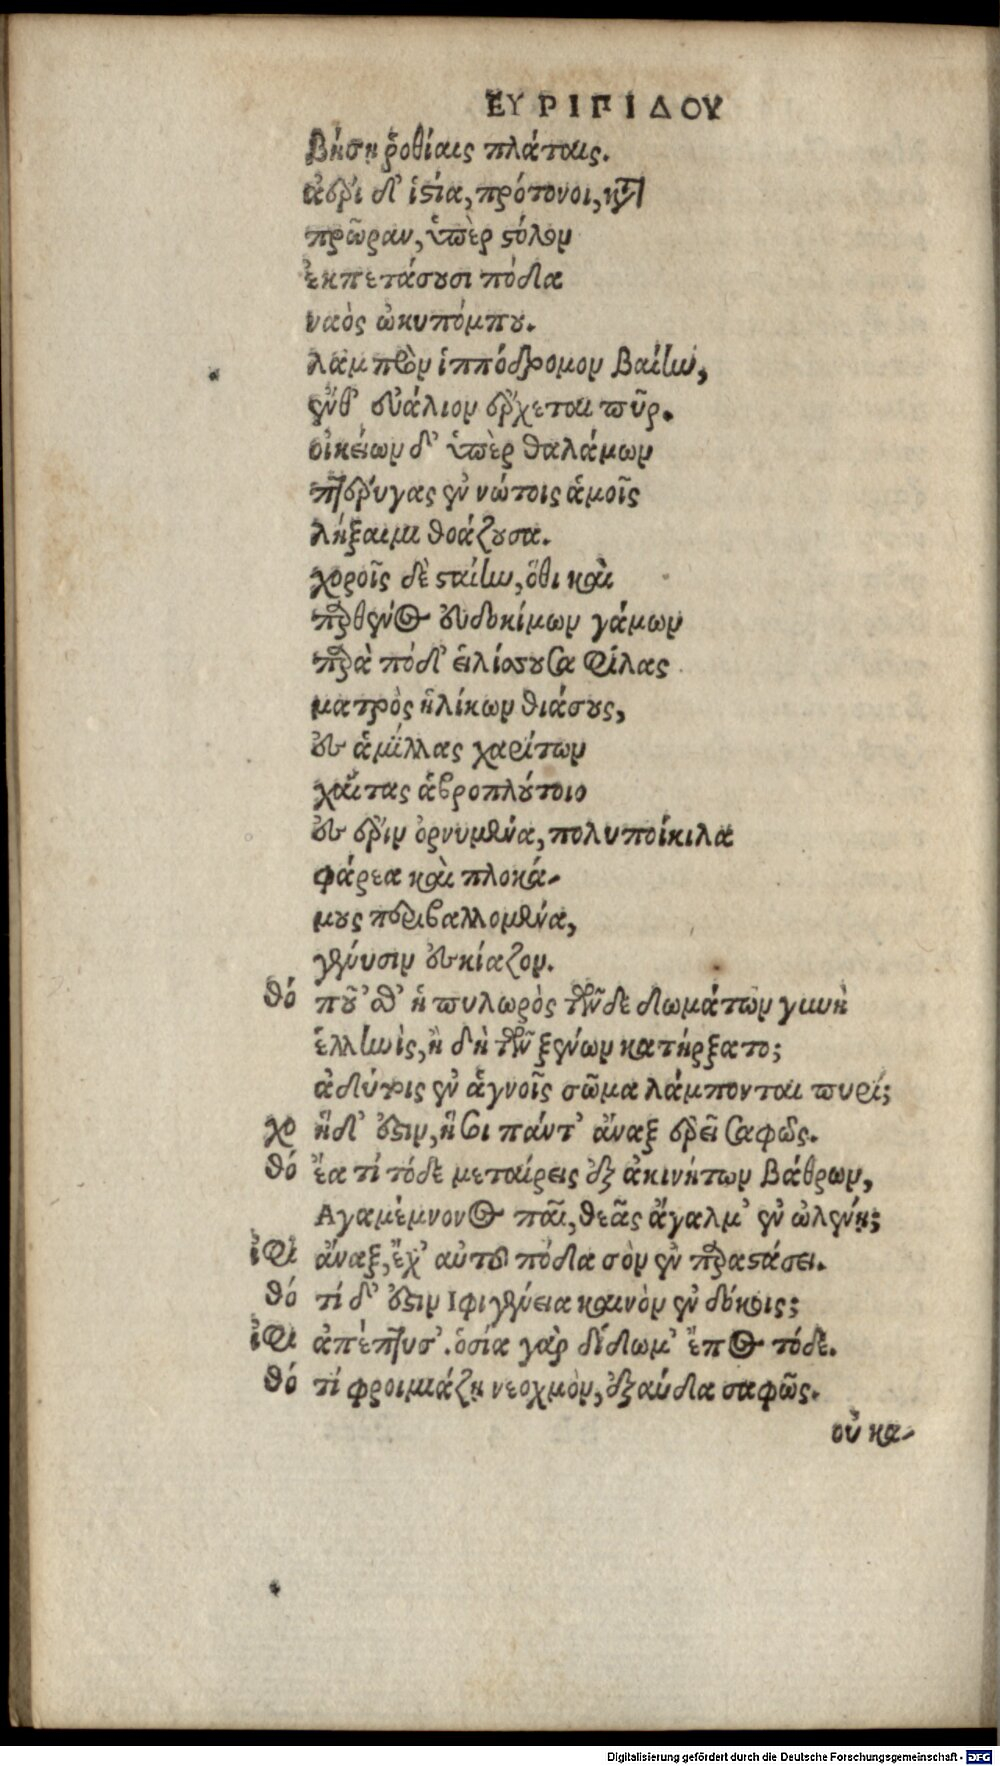 ΕΥΡΙΠΙΔΟΥ
βήσῃ ῥοθίαις πλάταις.
ἀέρι δ' ἱστία, πρότονοι, κατὰ
πρῶραν, ὑπὲρ στόλον
ἐκπετάσουσι πόδα
ναὸς ὠκυπόμπου.
λαμπρὸν ἱππόδρομον βαίην,
ἔνθ' εὐάλιον ἔρχεται πῦρ.
οἰκείων δ' ὑπὲρ θαλάμων
πτέρυγας ἐν νώτοις ἁμοῖς
λήξαιμι θοάζουσα.
χοροῖς δὲ σταίην, ὅθι καὶ
παρθένος εὐδοκίμων γάμων
παρὰ πόδ' εἱλίσσουσα φίλας
ματρὸς ἡλίκων θιάσους,
ἐς ἁμίλλας χαρίτων
χαίτας ἁβροπλούτοιο
ἐς ἔριν ὀρνυμένα, πολυποίκιλα
φάρεα καὶ πλοκά-
μους περιβαλλομένα,
γένυσιν ἐσκίαζον.
θό ποῦ 'σθ' ἡ πυλωρὸς τῶνδε δωμάτων γυνὴ
ἑλληνὶς, ἢ δὴ τῶν ξένων κατήρξατο;
ἀδύτοις ἐν ἁγνοῖς σῶμα λάμπονται πυρί;
χο ἥδ' ἐστιν, ἥ σοι πάντ' ἄναξ ἐρεῖ σαφῶς.
θό ἔα τί τόδε μεταίρεις ἐξ ἀκινήτων βάθρων,
Αγαμέμνονος παῖ, θεᾶς ἄγαλμ' ἐν ὠλένῃ;
ἰφι ἄναξ, ἔχ' αὐτοῦ πόδα σὸν ἐν παραστάσει.
θό τί δ' ἐστιν Ιφιγένεια καινὸν ἐν δόμοις;
ἰφι ἀπέπτυσ'. ὁσία γὰρ δίδωμ' ἔπος τόδε.
θό τί φροιμιάζῃ νεοχμὸν, ἐξαύδα σαφῶς.
οὐ κα-
Digitalisierung gefördert durch die Deutsche Forschungsgemeinschaft - DFG